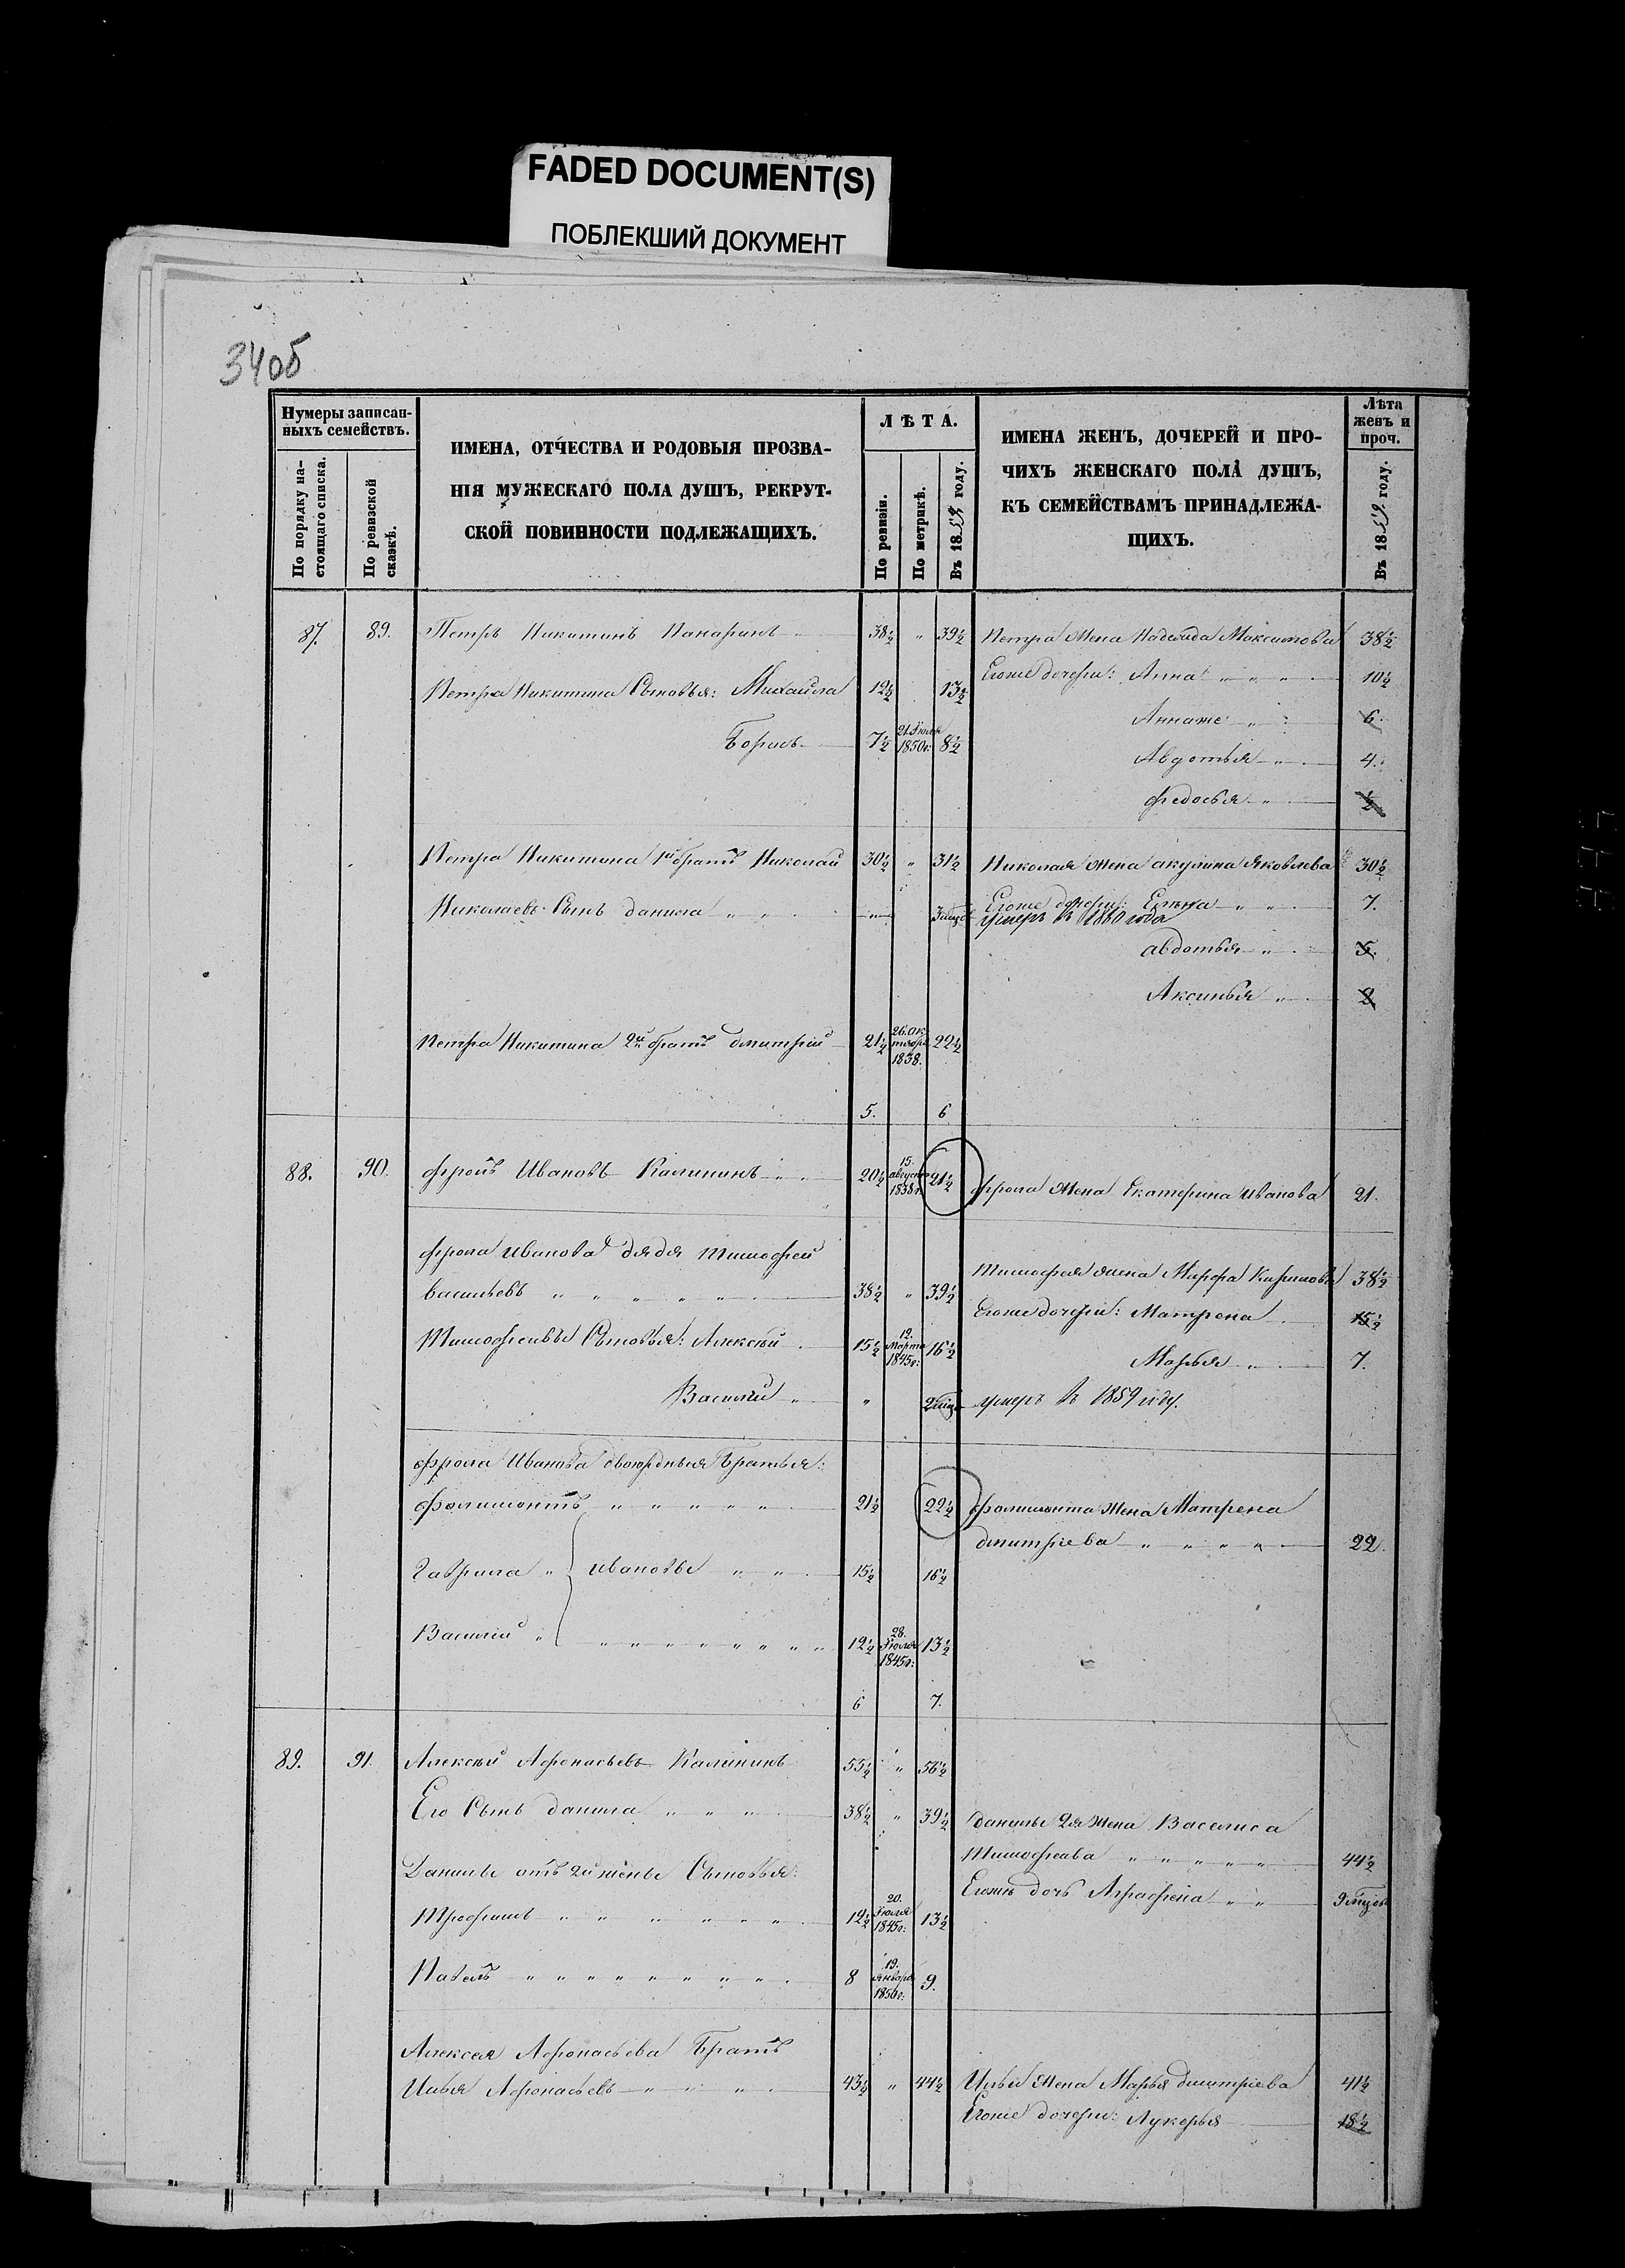 FADED DOCUMENT(S)
ПОБЛЕКШИЙ ДОКУМЕНТ
34об
Нумеры записан-
ныхъ семействъ.
По порядку на-
стоящаго списка.
По ревизской
сказкѣ.
ИМЕНА, ОТЧЕСТВА И РОДОВЫЯ ПРОЗВА-
НІЯ МУЖЕСКАГО ПОЛА ДУШЪ, РЕКРУТ-
СКОЙ ПОВИННОСТИ ПОДЛЕЖАЩИХЪ.
ЛѢТА.
По ревизіи.
По метрикѣ.
Въ 1859 году.
ИМЕНА ЖЕНЪ, ДОЧЕРЕЙ И ПРО-
ЧИХЪ ЖЕНСКАГО ПОЛА ДУШЪ,
КЪ СЕМЕЙСТВАМЪ ПРИНАДЛЕЖА-
ЩИХЪ.
Лѣта
женъ и
проч.
Въ 1859 году.
87. 89. Петръ Никитинъ 38½ " 39½ Петра жена Надежда Максимова 38½
Егоже дочери: Анна " " " 10½
Петра Никитина Сыновья: Михайла 12½ 13½
Аннаже " 6.
Борисъ 7½ 21. Іюля 1850г: 8½
Авдотья " 4.
Федосья " ½
Петра Никитина 1й братъ Николай 30½ " 31½ Николая жена акулина Яковлева 30½
Николаевъ Сынъ данила " " " 3 мѣцов Егоже дочери: Елена " " 7.
умеръ въ 1860 года
авдотья " 5.
Аксинья " 2
Петра Никитина 2й братъ дмитрій 21½ 26. Октября 1838. 22½
5. 6
88. 90. Фролъ Ивановъ Калининъ " 20½ 15. августа 1838г. 21½ Фрола жена Екатерина иванова 21.
Фрола иванова дядя Тимофей
васильевъ " " " " " " 38½ " 39½ Тимофея жена Марфа 38½
Егоже дочери: Матрена 15½
Тимофеивы Сыновья: Алексѣй 15½ 12. Марта 1845г: 16½
Марья " 7.
Василій " " 2 мѣц. умеръ въ 1859 году.
Фрола Иванова двоюродныя Братья:
Филимонтъ " " " " " 21½ 22½ Филимонта жена Матрена
дмитріева " " " " " 22.
Гаврила " ивановы " " 15½ 16½
Василій " " " " " " " " " 12½ 28. Іюля 1845г: 13½
6 7.
89. 91. Алексѣй Афонасьевъ Калининъ 55½ " 56½
Его Сынъ данила " " " 38½ " 39½ данилы 2я жена Василиса
Тимофеева " " " " " 44½
Данилы отъ 2й жены Сыновья:
Егоже дочь Аграфена " " 9 мѣцов
Трофимъ " " " " " " 12½ 20. Іюля 1845г: 13½
Павелъ " " " " " " " " 8 19. Января 1850г: 9.
Алексея Афонасьева Братъ
Илья Афонасьевъ " " " 43½ " 44½ Ильи жена Марья дмитріева 41½
Егоже дочери: Лукерья 18½